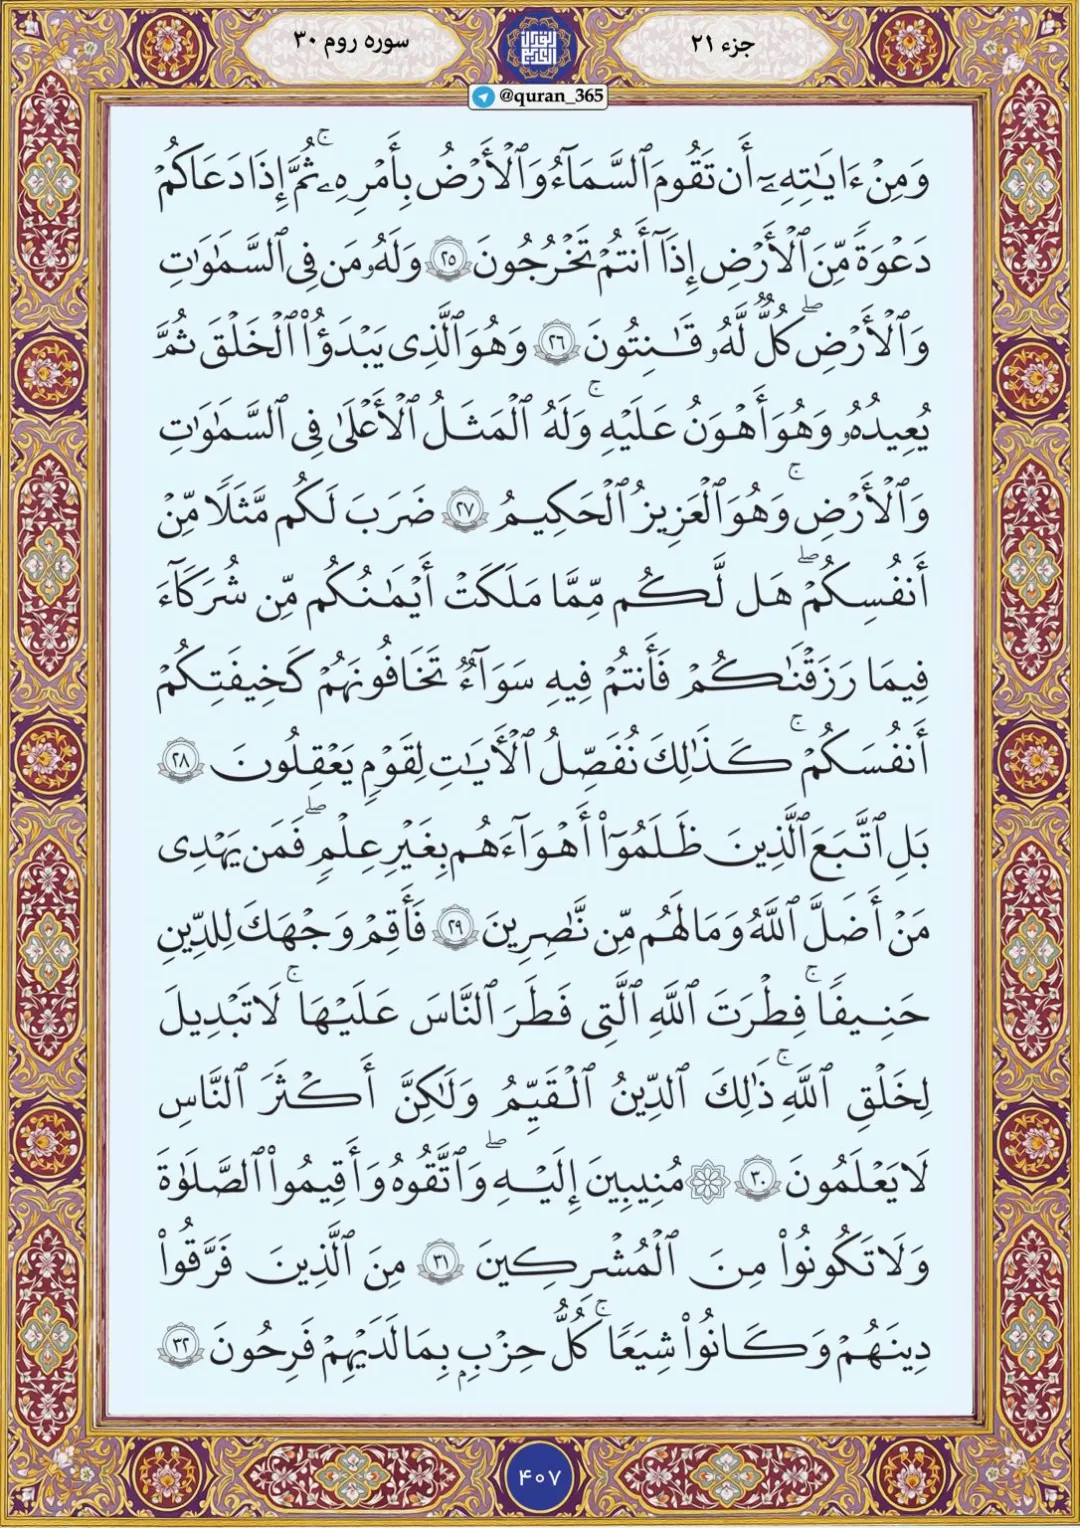 جزء ۲۱
سوره روم ۳۰
@quran_365
وَمِنۡ ءَايَٰتِهِۦٓ أَن تَقُومَ ٱلسَّمَآءُ وَٱلۡأَرۡضُ بِأَمۡرِهِۦۚ ثُمَّ إِذَا دَعَاكُمۡ
دَعۡوَةٗ مِّنَ ٱلۡأَرۡضِ إِذَآ أَنتُمۡ تَخۡرُجُونَ ٢٥ وَلَهُۥ مَن فِي ٱلسَّمَٰوَٰتِ
وَٱلۡأَرۡضِۖ كُلّٞ لَّهُۥ قَٰنِتُونَ ٢٦ وَهُوَ ٱلَّذِي يَبۡدَؤُاْ ٱلۡخَلۡقَ ثُمَّ
يُعِيدُهُۥ وَهُوَ أَهۡوَنُ عَلَيۡهِۚ وَلَهُ ٱلۡمَثَلُ ٱلۡأَعۡلَىٰ فِي ٱلسَّمَٰوَٰتِ
وَٱلۡأَرۡضِۚ وَهُوَ ٱلۡعَزِيزُ ٱلۡحَكِيمُ ٢٧ ضَرَبَ لَكُم مَّثَلٗا مِّنۡ
أَنفُسِكُمۡۖ هَل لَّكُم مِّمَّا مَلَكَتۡ أَيۡمَٰنُكُم مِّن شُرَكَآءَ
فِيمَا رَزَقۡنَٰكُمۡ فَأَنتُمۡ فِيهِ سَوَآءٞ تَخَافُونَهُمۡ كَخِيفَتِكُمۡ
أَنفُسَكُمۡۚ كَذَٰلِكَ نُفَصِّلُ ٱلۡأٓيَٰتِ لِقَوۡمٖ يَعۡقِلُونَ ٢٨
بَلِ ٱتَّبَعَ ٱلَّذِينَ ظَلَمُوٓاْ أَهۡوَآءَهُم بِغَيۡرِ عِلۡمٖۖ فَمَن يَهۡدِي
مَنۡ أَضَلَّ ٱللَّهُ وَمَا لَهُم مِّن نَّٰصِرِينَ ٢٩ فَأَقِمۡ وَجۡهَكَ لِلدِّينِ
حَنِيفٗاۚ فِطۡرَتَ ٱللَّهِ ٱلَّتِي فَطَرَ ٱلنَّاسَ عَلَيۡهَاۚ لَا تَبۡدِيلَ
لِخَلۡقِ ٱللَّهِۚ ذَٰلِكَ ٱلدِّينُ ٱلۡقَيِّمُ وَلَٰكِنَّ أَكۡثَرَ ٱلنَّاسِ
لَا يَعۡلَمُونَ ٣٠ ۞ مُنِيبِينَ إِلَيۡهِۖ وَٱتَّقُوهُ وَأَقِيمُواْ ٱلصَّلَوٰةَ
وَلَا تَكُونُواْ مِنَ ٱلۡمُشۡرِكِينَ ٣١ مِنَ ٱلَّذِينَ فَرَّقُواْ
دِينَهُمۡ وَكَانُواْ شِيَعٗاۚ كُلُّ حِزۡبِۭ بِمَا لَدَيۡهِمۡ فَرِحُونَ ٣٢
۴۰۷